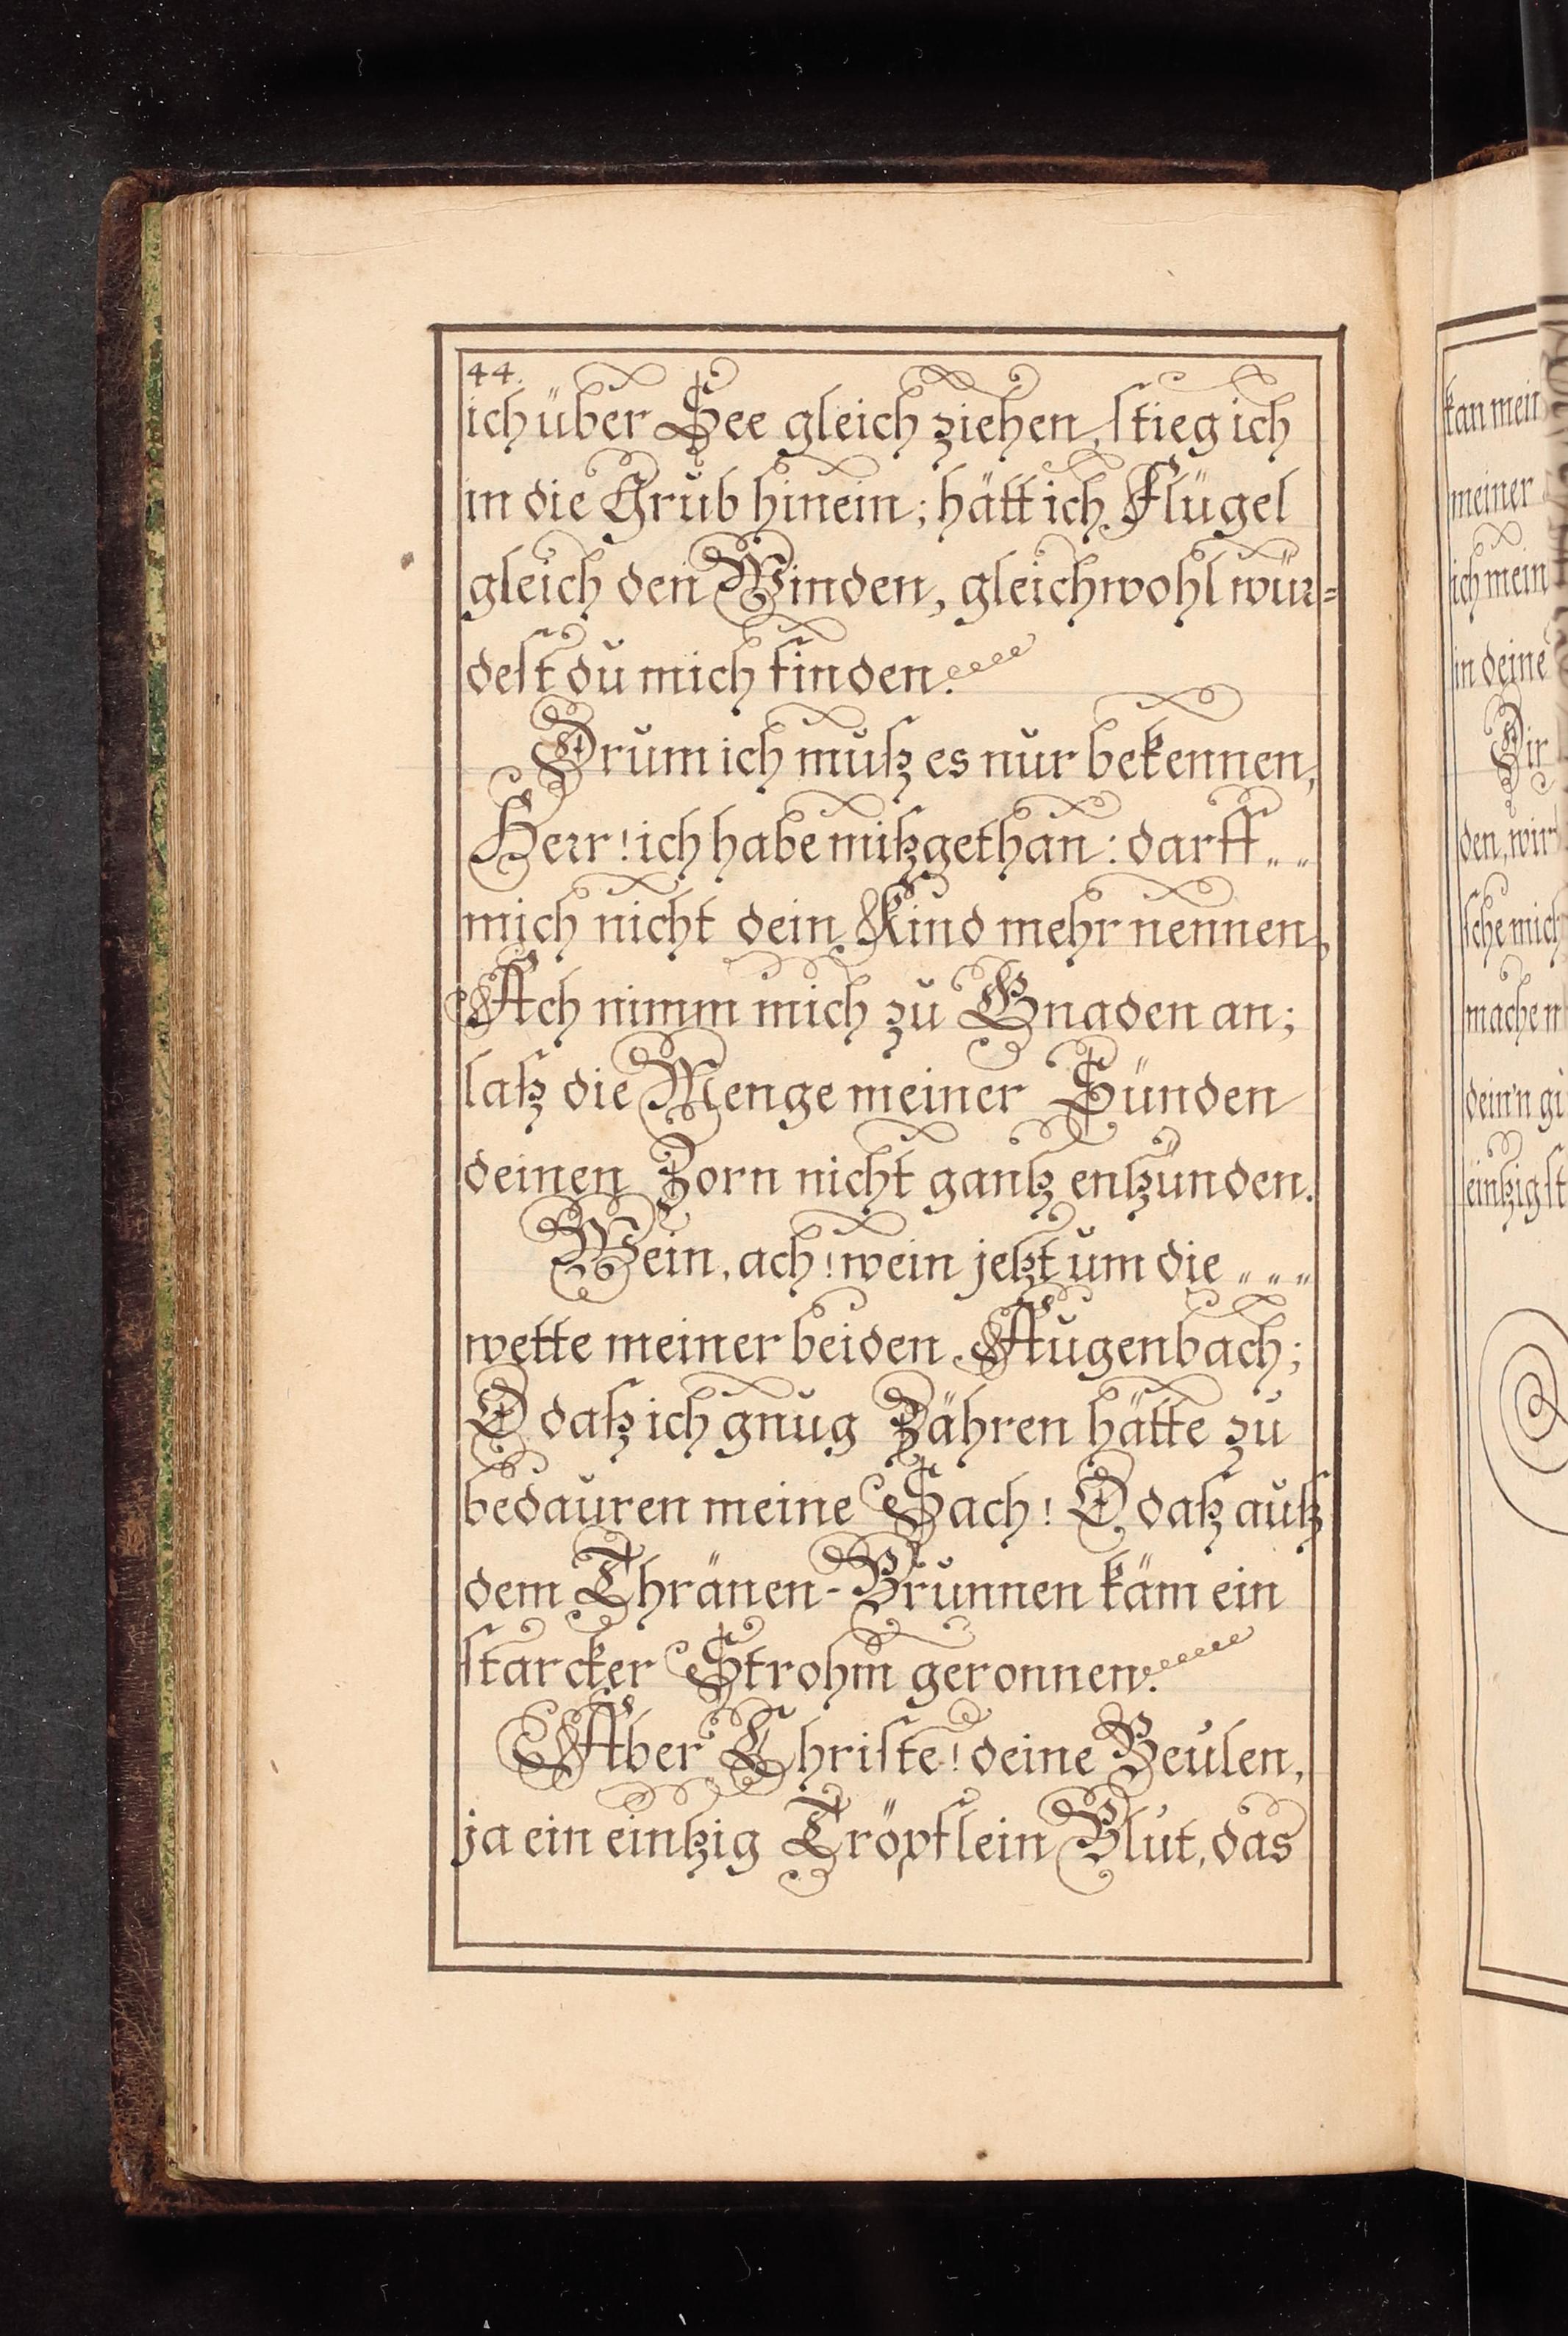 44.
ich über See gleich ziehen, stieg ich
in die Grub hinein; hätt ich Flügel
gleich den Winden, gleichwohl wür=
dest du mich finden.
Drum ich muß es nur bekennen,
Herr! ich habe mißgethan: darff „ „
mich nicht dein Kind mehr nennen,
Ach nimm mich zu Gnaden an;
laß die Menge meiner Sünden
deinen Zorn nicht gantz entzünden.
Wein, ach! wein jetzt um die „ „ „
wette meiner beiden Augenbach;
O daß ich gnug Zähren hätte zu
bedauren meine Sach! O daß auß
dem Thränen-Brunnen käm ein
starcker Strohm geronnen.
Aber Christe! deine Beulen,
ja ein eintzig Tröpflein Blut, das
kan mein
meiner
ich mein
in deine
Dir
den, wir
sche mich
mache m
dein'n gi
eintzig st